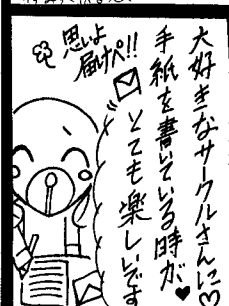 大好きなサークルさんに♡
手紙を書いている時が♥
とても楽しいです
思いよ
届けペ!!